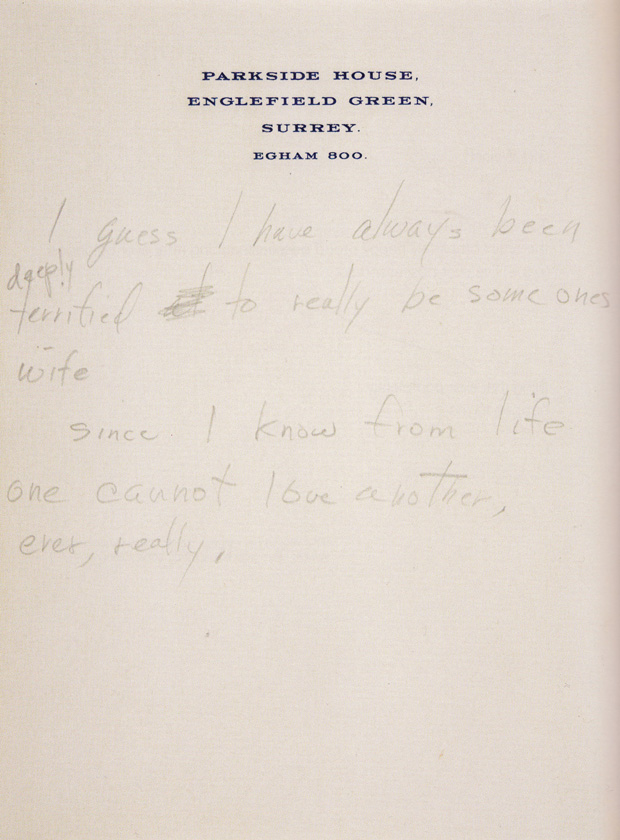 PARKSIDE HOUSE,
ENGLEFIELD GREEN,
SURREY.
EGHAM 800.
I guess I have always been
deeply
terrified to really be someones
wife
since I know from life
one cannot love another,
ever, really,